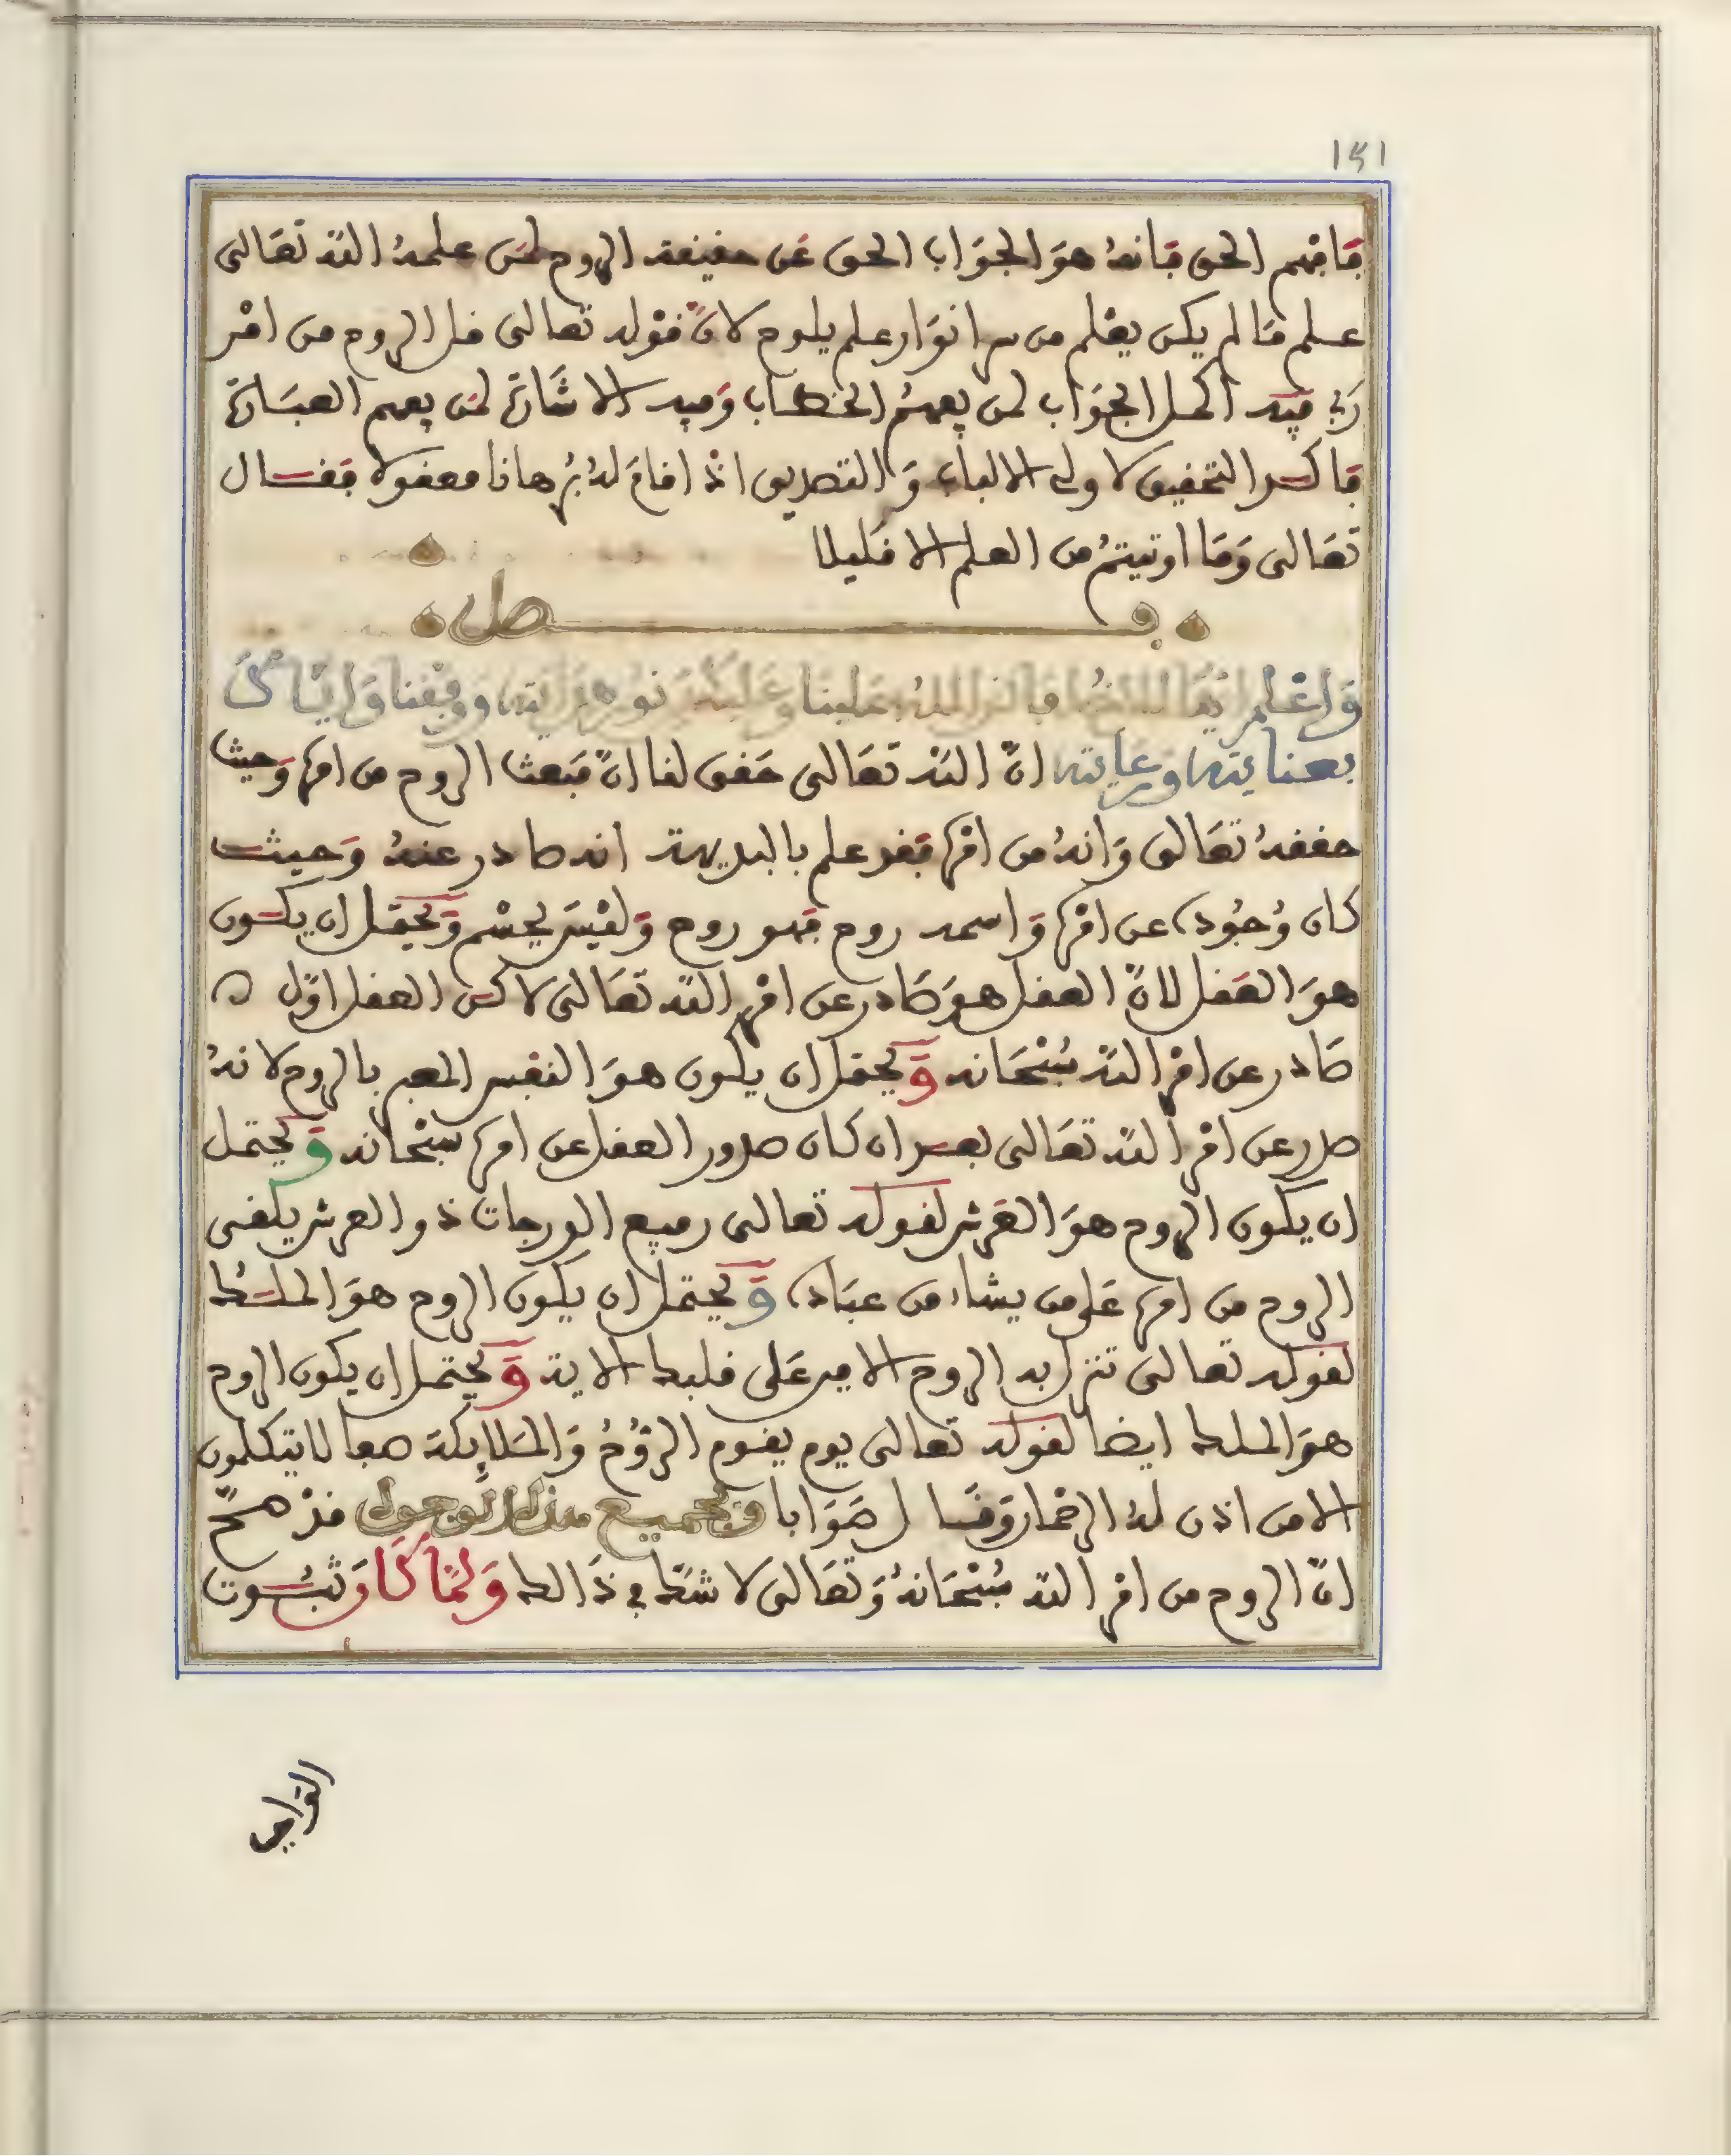 ١٤١
فَافهم الحق فَانهُ هوَ الجوَاب الحق عَن حقيقة الروح لمن علمهُ الله تعَالى
علم مَا لم يكن يعْلم من سر انوَار علم يلوح لانّ قوْله تعالى قل الروح من امْر
رَبي فيه اكمل الجوَاب لمن يفهمُ الخطاب وَفيه الاشَارة لمن يفهم العبَارة
فاكد التحقيق لاولى الالباب وَالتصديق اذْ اقامَ لهُ بُرهانا معقولا فقال
تعَالى وَمَا اوتيتمُ من العلم الا قليلا
فصل
وَاعْلم ايهَا الاخ افاض اللهُ علينا وعَليك نور هدايته ووفقنا وَايّاكَ
بعنايته ورعايته انّ الله تعَالى حَقق لنا انّ مَبعث الروح من امره وَحيث
حققهُ تعَالى وَانهُ من امْره فقد علم بالبديهة انه صادر عنهُ وَحيث
كان وُجُوده عن امْره وَاسمه روح فهو روح وَليْسَ بجسْم وَيحتمل ان يكون
هوَ العَقل لانّ العقل هوَ صَادر عن امْر الله تعَالى لاكن العقل اوّل
صَادر عن امْر الله سُبْحَانه وَيحتمل ان يكون هوَ النفس المعبر بالروح لانهُ
صدر عن امْر الله تعَالى بعد ان كان صدور العقل عن امره سبْحانه وَيحتمل
ان يكون الروح هوَ العَرش لقوله تعالى رفيع الدرجات ذو العرش يلقى
الروح من امره عَلى من يشاء من عبَاده وَيحتمل ان يكون الروح هوَ الملك
لقوله تعالى تنزل به الروح الامين عَلى قلبك الاية وَيحتمل ان يكون الروح
هوَ الملك ايضا لقوله تعالى يوم يقوم الروُحُ وَالمَلاِئكة صفا لا يتكلمون
الا من اذن لهُ الرحمان وَقَال صَوَابا وَبجميع هذه الوجوه قدْ صحّ
انّ الروح من امْر الله سُبْحَانهُ وَتعَالى لا شكّ في ذَالك وَلمّا كَانَ ثبُوت